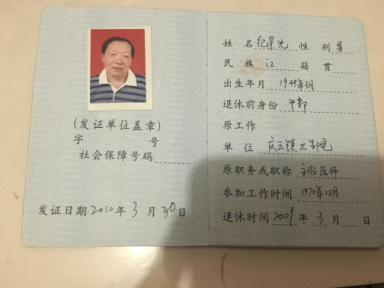 (发证单位盖章)
字 号
社会保障号码
发证日期2010年3月30日
姓名 纪景光 性别 男
民族 汉 籍贯
出生年月 1949年3月
退休前身份 干部
原工作
单位 庆云镇卫生院
原职务或职称 主治医师
参加工作时间 1970年12月
退休时间2009年3月 日